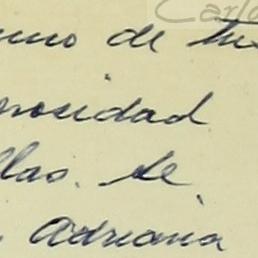 Carlo
uno de tu
nosidad
llas. de
Adriana